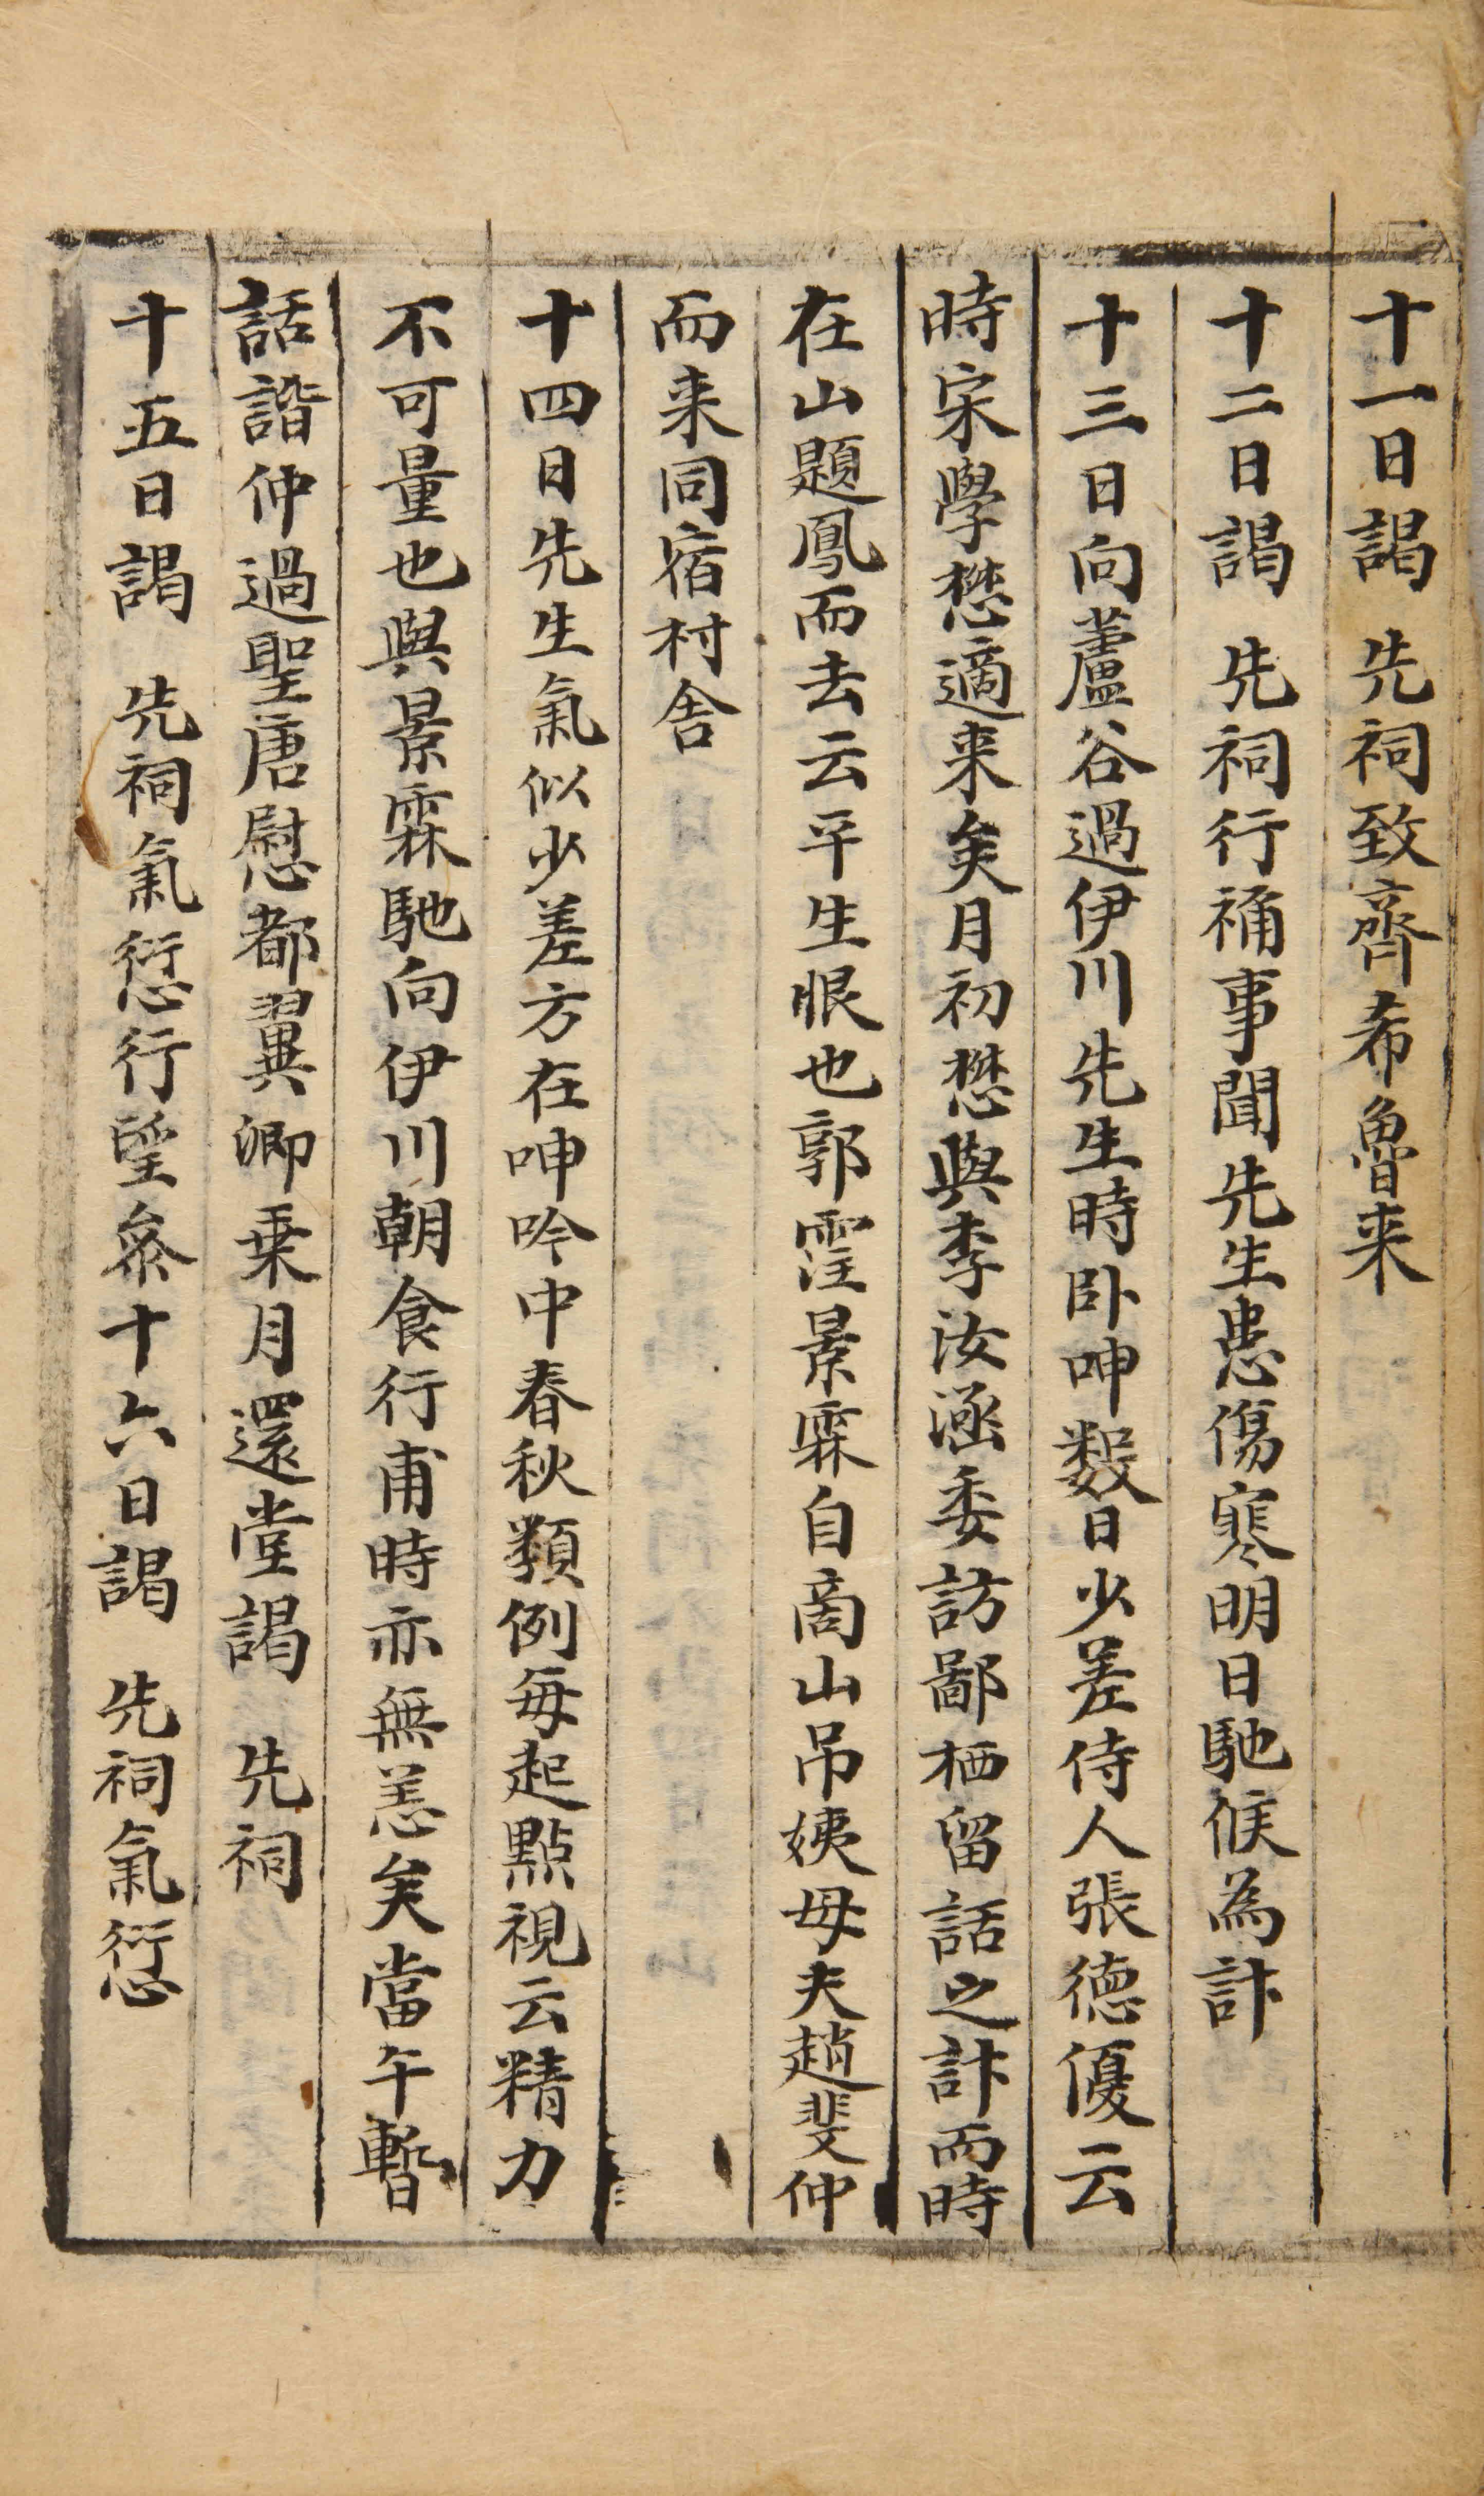 十一日謁　先祠致齊希魯来
十二日謁　先祠行禴事聞先生患傷寒明日馳候為計
十三日向蘆谷過伊川先生時卧呻數日少差侍人張德優云
時宋學懋適来矣月初懋與李汝涵委訪鄙栖留話之計而時
在山題鳳而去云平生恨也郭霔景霖自商山吊姨母夫趙斐仲
而来同宿村舍
十四日先生氣似少差方在呻吟中春秋類例每起點視云精力
不可量也與景霖馳向伊川朝食行甫時亦無恙矣當午暫
話諧仲過聖唐慰都翼卿乘月還堂謁　先祠
十五日謁　先祠氣愆行望叅十六日謁　先祠氣愆